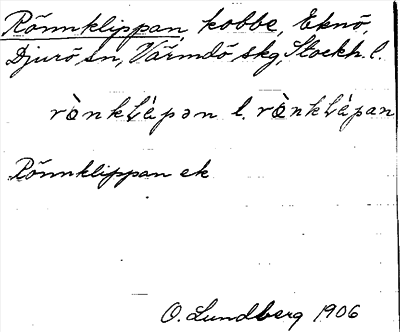 Rönnklippan, kobbe, Eknö,
Djurö sn, Värmdö skg, Stockh. l.
rö̀nklı̀pən l. rö̀nklı̀pan
Rönnklippan ek
O. Lundberg 1906